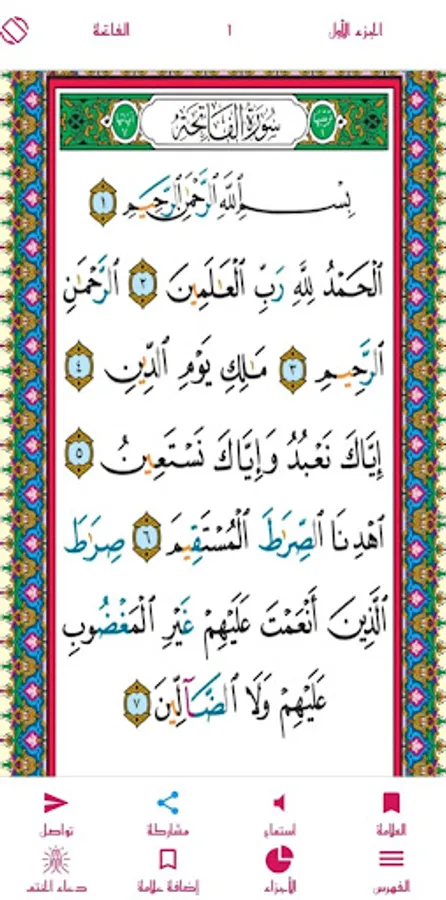 الجزء الأول ١ الفاتحة
سُورَةُ الفَاتِحَةِ
بِسْمِ ٱللَّهِ ٱلرَّحْمَٰنِ ٱلرَّحِيمِ ١
ٱلْحَمْدُ لِلَّهِ رَبِّ ٱلْعَٰلَمِينَ ٢ ٱلرَّحْمَٰنِ
ٱلرَّحِيمِ ٣ مَٰلِكِ يَوْمِ ٱلدِّينِ ٤
إِيَّاكَ نَعْبُدُ وَإِيَّاكَ نَسْتَعِينُ ٥
ٱهْدِنَا ٱلصِّرَٰطَ ٱلْمُسْتَقِيمَ ٦ صِرَٰطَ
ٱلَّذِينَ أَنْعَمْتَ عَلَيْهِمْ غَيْرِ ٱلْمَغْضُوبِ
عَلَيْهِمْ وَلَا ٱلضَّآلِّينَ ٧
العلامة استماع مشاركة تواصل
الفهرس الأجزاء إضافة علامة دعاء الختم